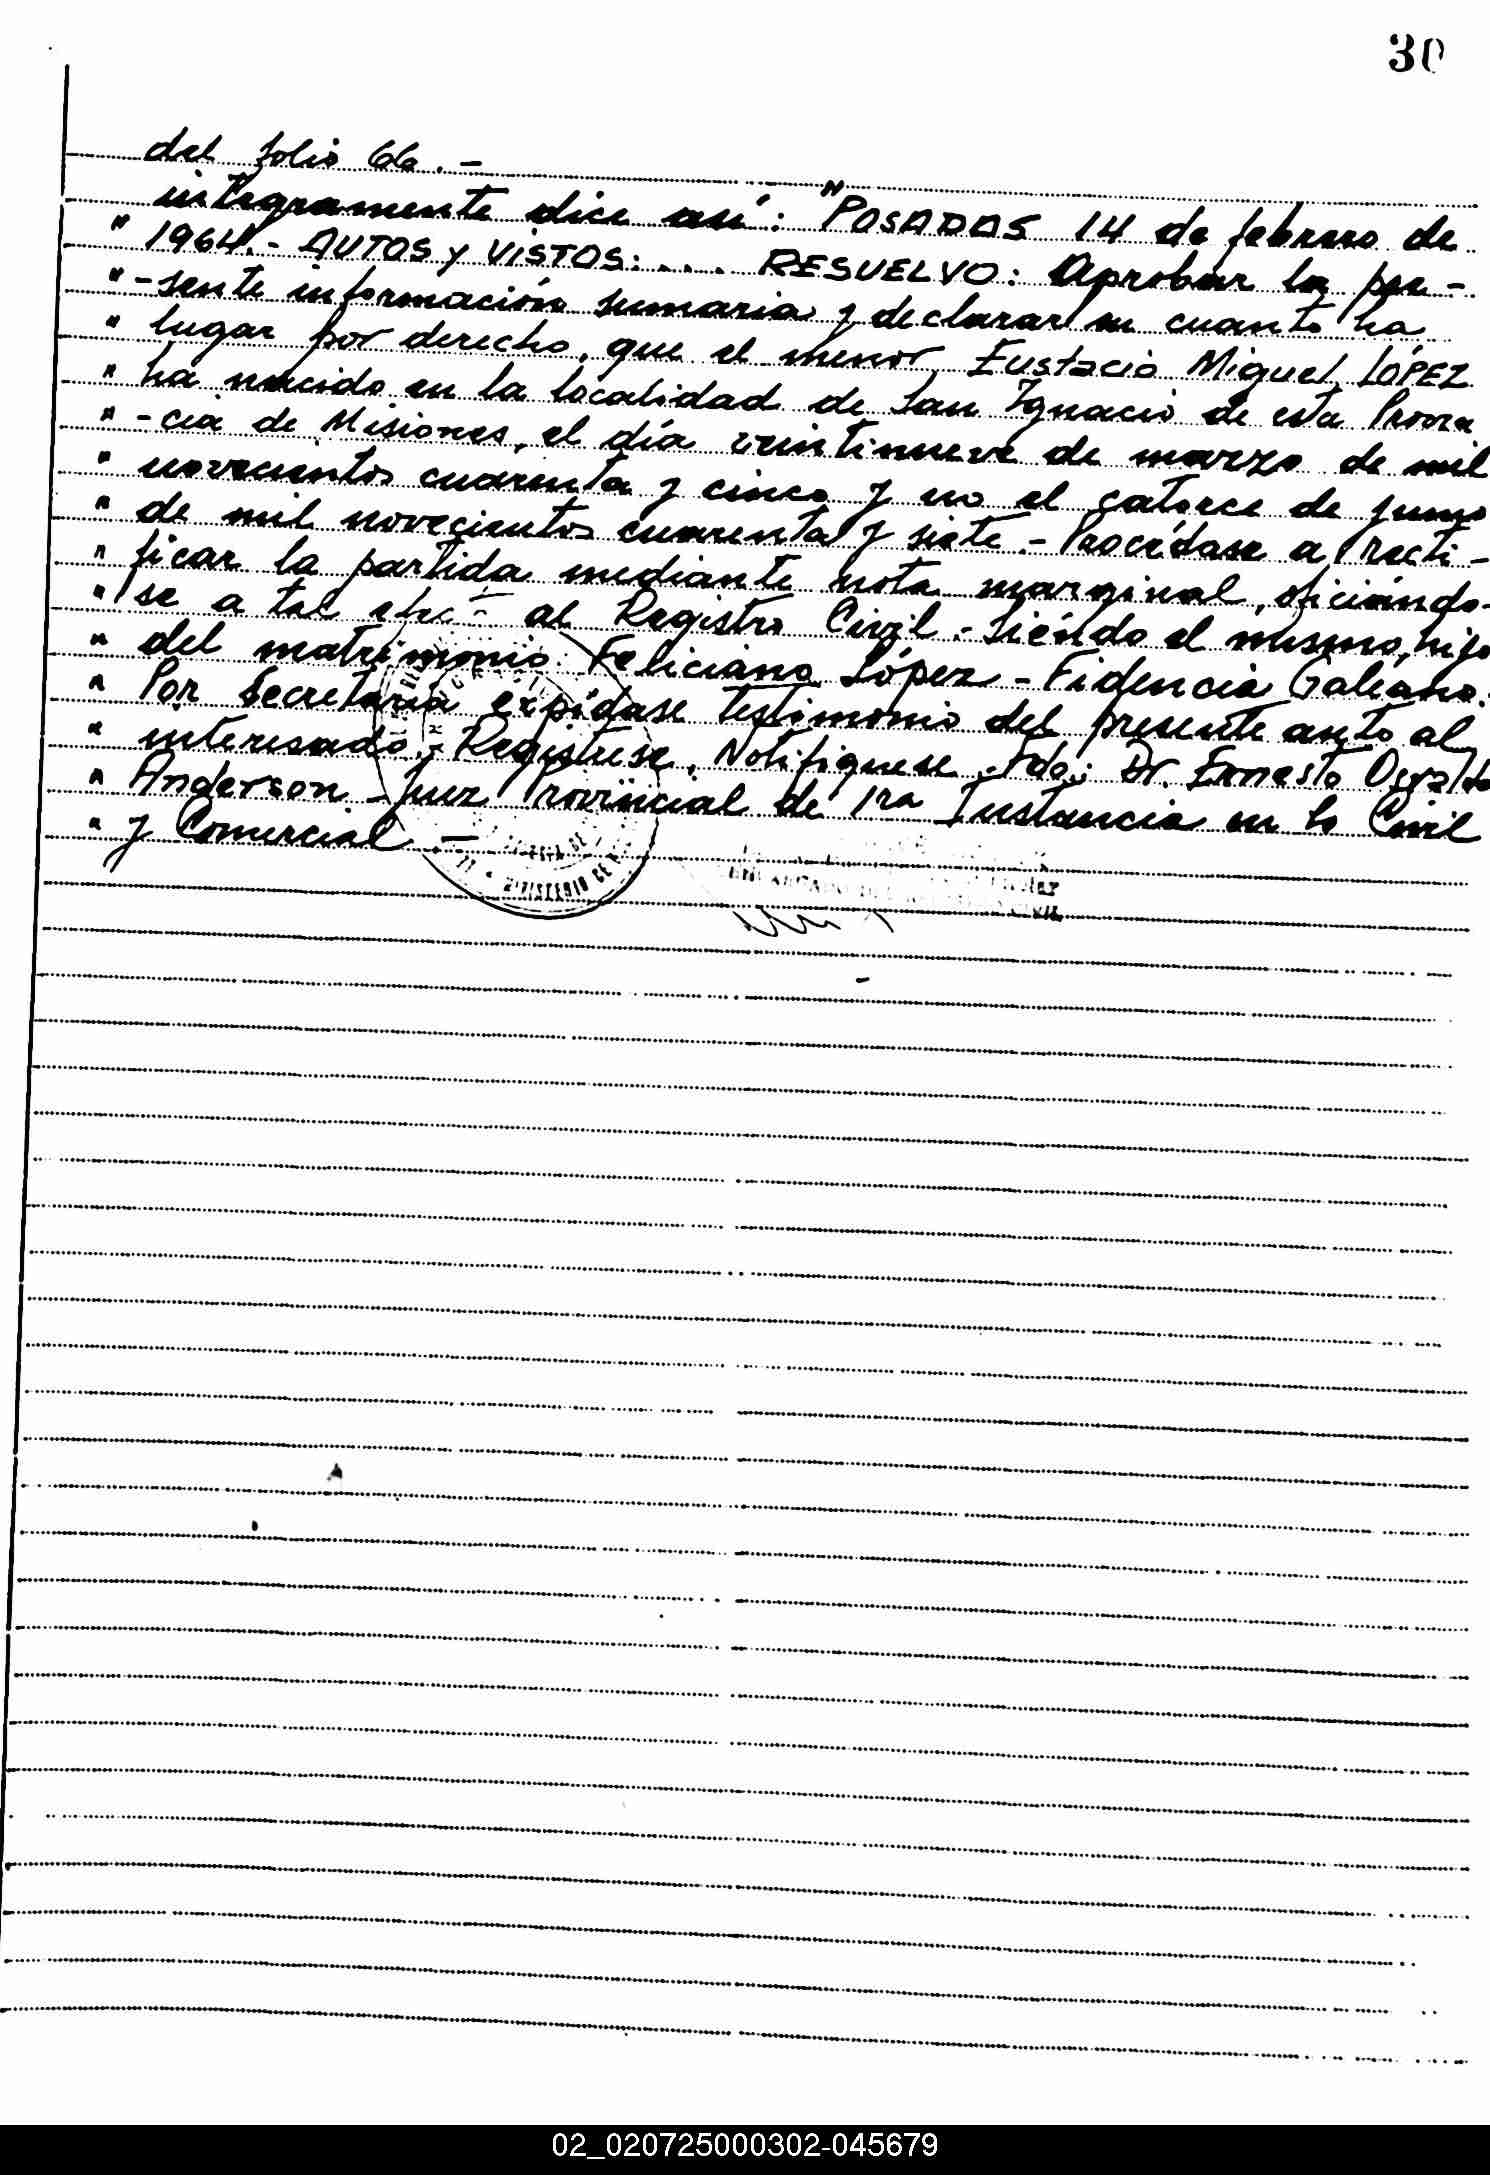 30
del folio 66.-
integramente dice así: "POSADAS 14 de febrero de
" 1964.- AUTOS y VISTOS: ... RESUELVO: Aprobar la pre-
" -sente información sumaria y declarar en cuanto ha
" lugar por derecho, que el menor Eustacio Miguel LÓPEZ
" ha nacido en la localidad de San Ignacio de esta Provin
" -cia de Misiones, el día veintinueve de marzo de mil
" novecientos cuarenta y cinco y no el catorce de junio
" de mil novecientos cuarenta y siete.- Procédase a recti-
" ficar la partida mediante nota marginal, oficiándo-
" se a tal efecto al Registro Civil.- Siendo el mismo, hijo
" del matrimonio: Feliciano López - Fidencia Galeano.
" Por Secretaría expídase testimonio del presente auto al
" interesado.- Regístrese. Notifíquese.- Fdo: Dr. Ernesto Osvaldo
" Anderson - Juez Provincial de 1ra Instancia en lo Civil
" y Comercial.-
MINISTERIO DE
CIVIL
02_020725000302-045679